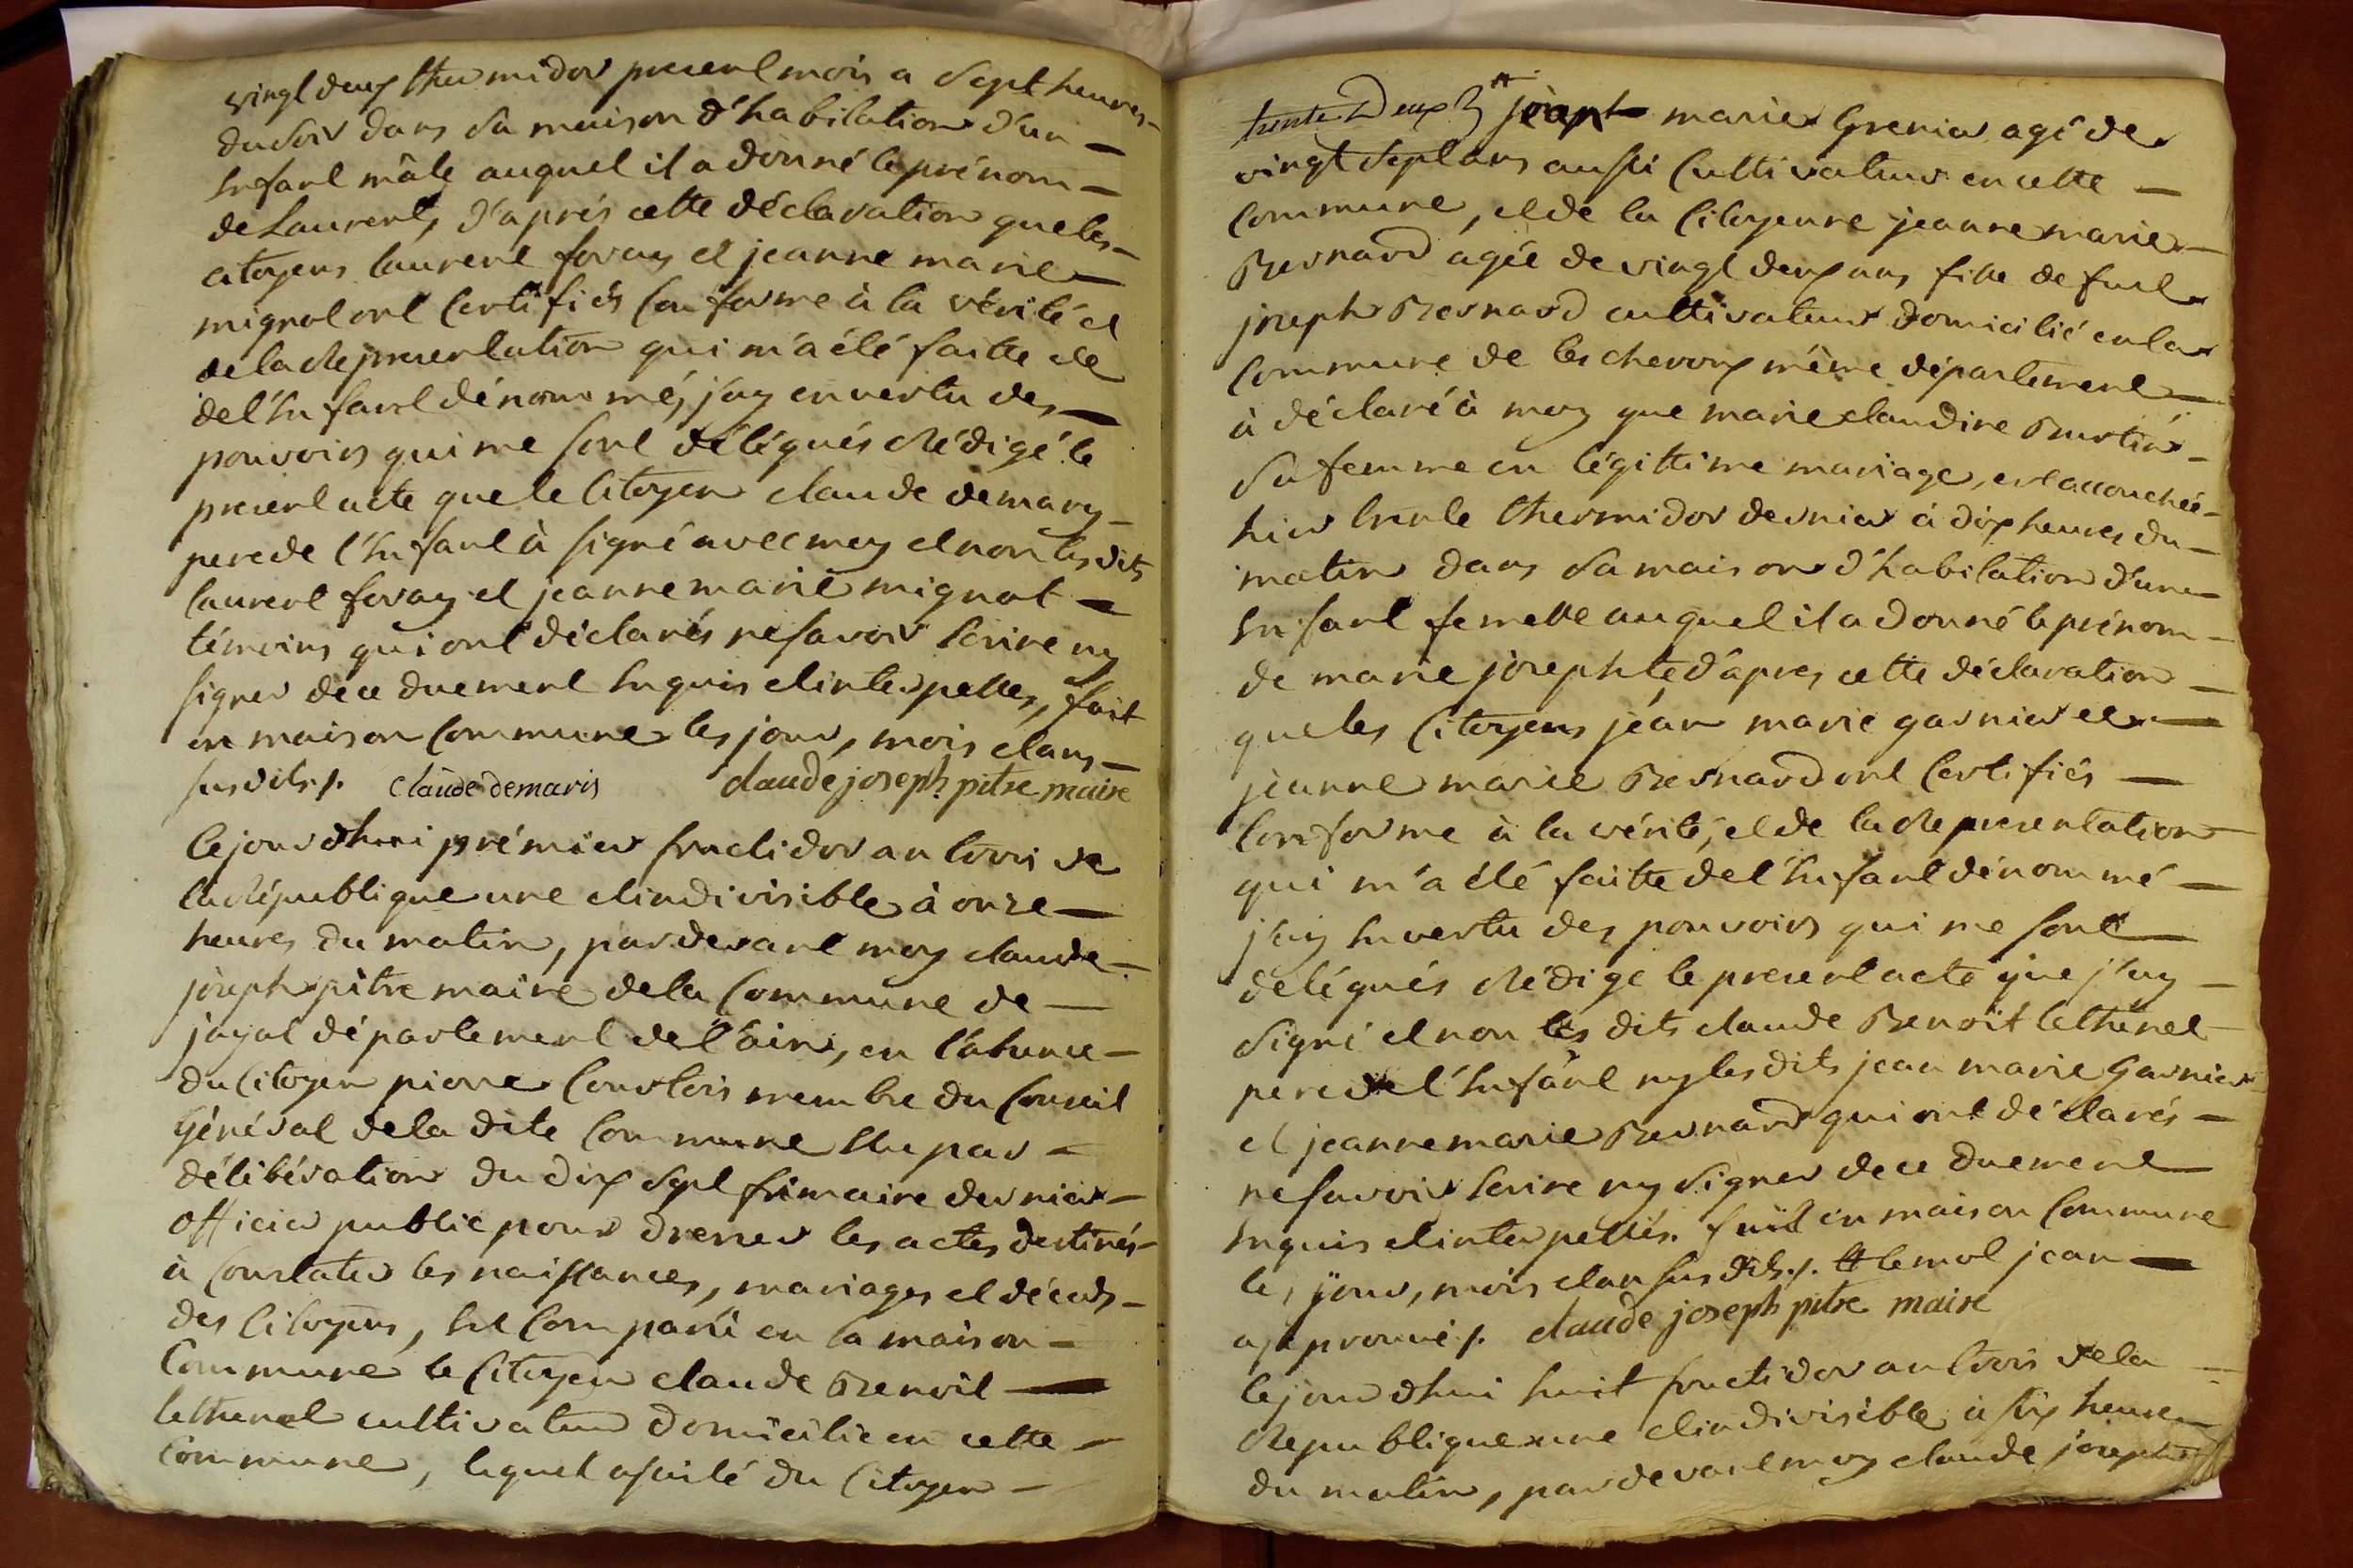 vingt deux thermidor present mois a sept heures
du soir dans sa maison d'habitation d'un
Enfant mâle auquel il a donné le prénom
de Laurent, d'après cette déclaration que les
citoyens laurent favay et jeanne marie
mignat ont Certifiés Conforme à la vérité et
de la Representation qui m'a été faitte de
de l'Enfant dénommé, j'ay en vertu des
pouvoirs qui me sont délégués Rédigé le
present acte que le Citoyen claude demary
pere de l'Enfant à signé avec moy et non les dits
laurent favay et jeanne marie mignat
témoins qui ont déclarés ne savoir Ecrire ny
signer de ce duement Enquis et interpellés, fait
en maison Commune les jour, mois et ans
susdits ./. claude demaris claude joseph pitre maire
Cejourdhui prémier fructidor an trois de
la République une et indivisible à onze
heures du matin, pardevant moy claude
joseph pitre maire de la Commune de
jayat département de l'ain, en l'absence
du Citoyen pierre Courtois membre du Conseil
Général de la dite Commune Elu par
délibération du dix sept frimaire dernier
officier public pour dresser les actes destinés
à Constater les naissances, mariages et décèds
des Citoyens, Est Comparü en la maison
Commune le Citoyen claude Benoit
lethenet cultivateur domicilié en cette
Commune, lequel assisté du Citoyen
trente deux jean marie Grenier agé de
vingt sept ans aussi Cultivateur en cette
Commune, et de la Citoyenne jeanne marie
Bernard agée de vingt deux ans fille de fut
joseph Bernard cultivateur domicilié en la
Commune de les cheroux même département
à déclaré à moy que marie claudine Burtin
sa femme en légittime mariage, est accouchée
hier trente thermidor dernier à dix heures du
matin dans sa maison d'habitation d'une
Enfant femelle auquel il a donné le prénom
de marie josephte, d'apres cette déclaration
que les Citoyens jéan marie garnier et
jeanne marie Bernard ont Certifiés
Conforme à la vérité, et de la Representation
qui m'a été faitte de l'Enfant dénommé
j'ay En vertu des pouvoirs qui me sont
délégués Rédigé le present acte que j'ay
signé et non les dits claude Benoit lethenet
pere de l'Enfant ny les dits jean marie Garnier
et jeanne marie Bernard qui ont déclarés
ne savoir Ecrire ny signer de ce duement
Enquis et interpellés. fait en maison Commune
les jour, mois et an susdits ./. # le mot jean
approuvé ./. claude joseph pitre maire
Cejourdhui huit fructidor an trois de la
Republique une et indivisible à six heures
du matin, pardevant moy claude joseph